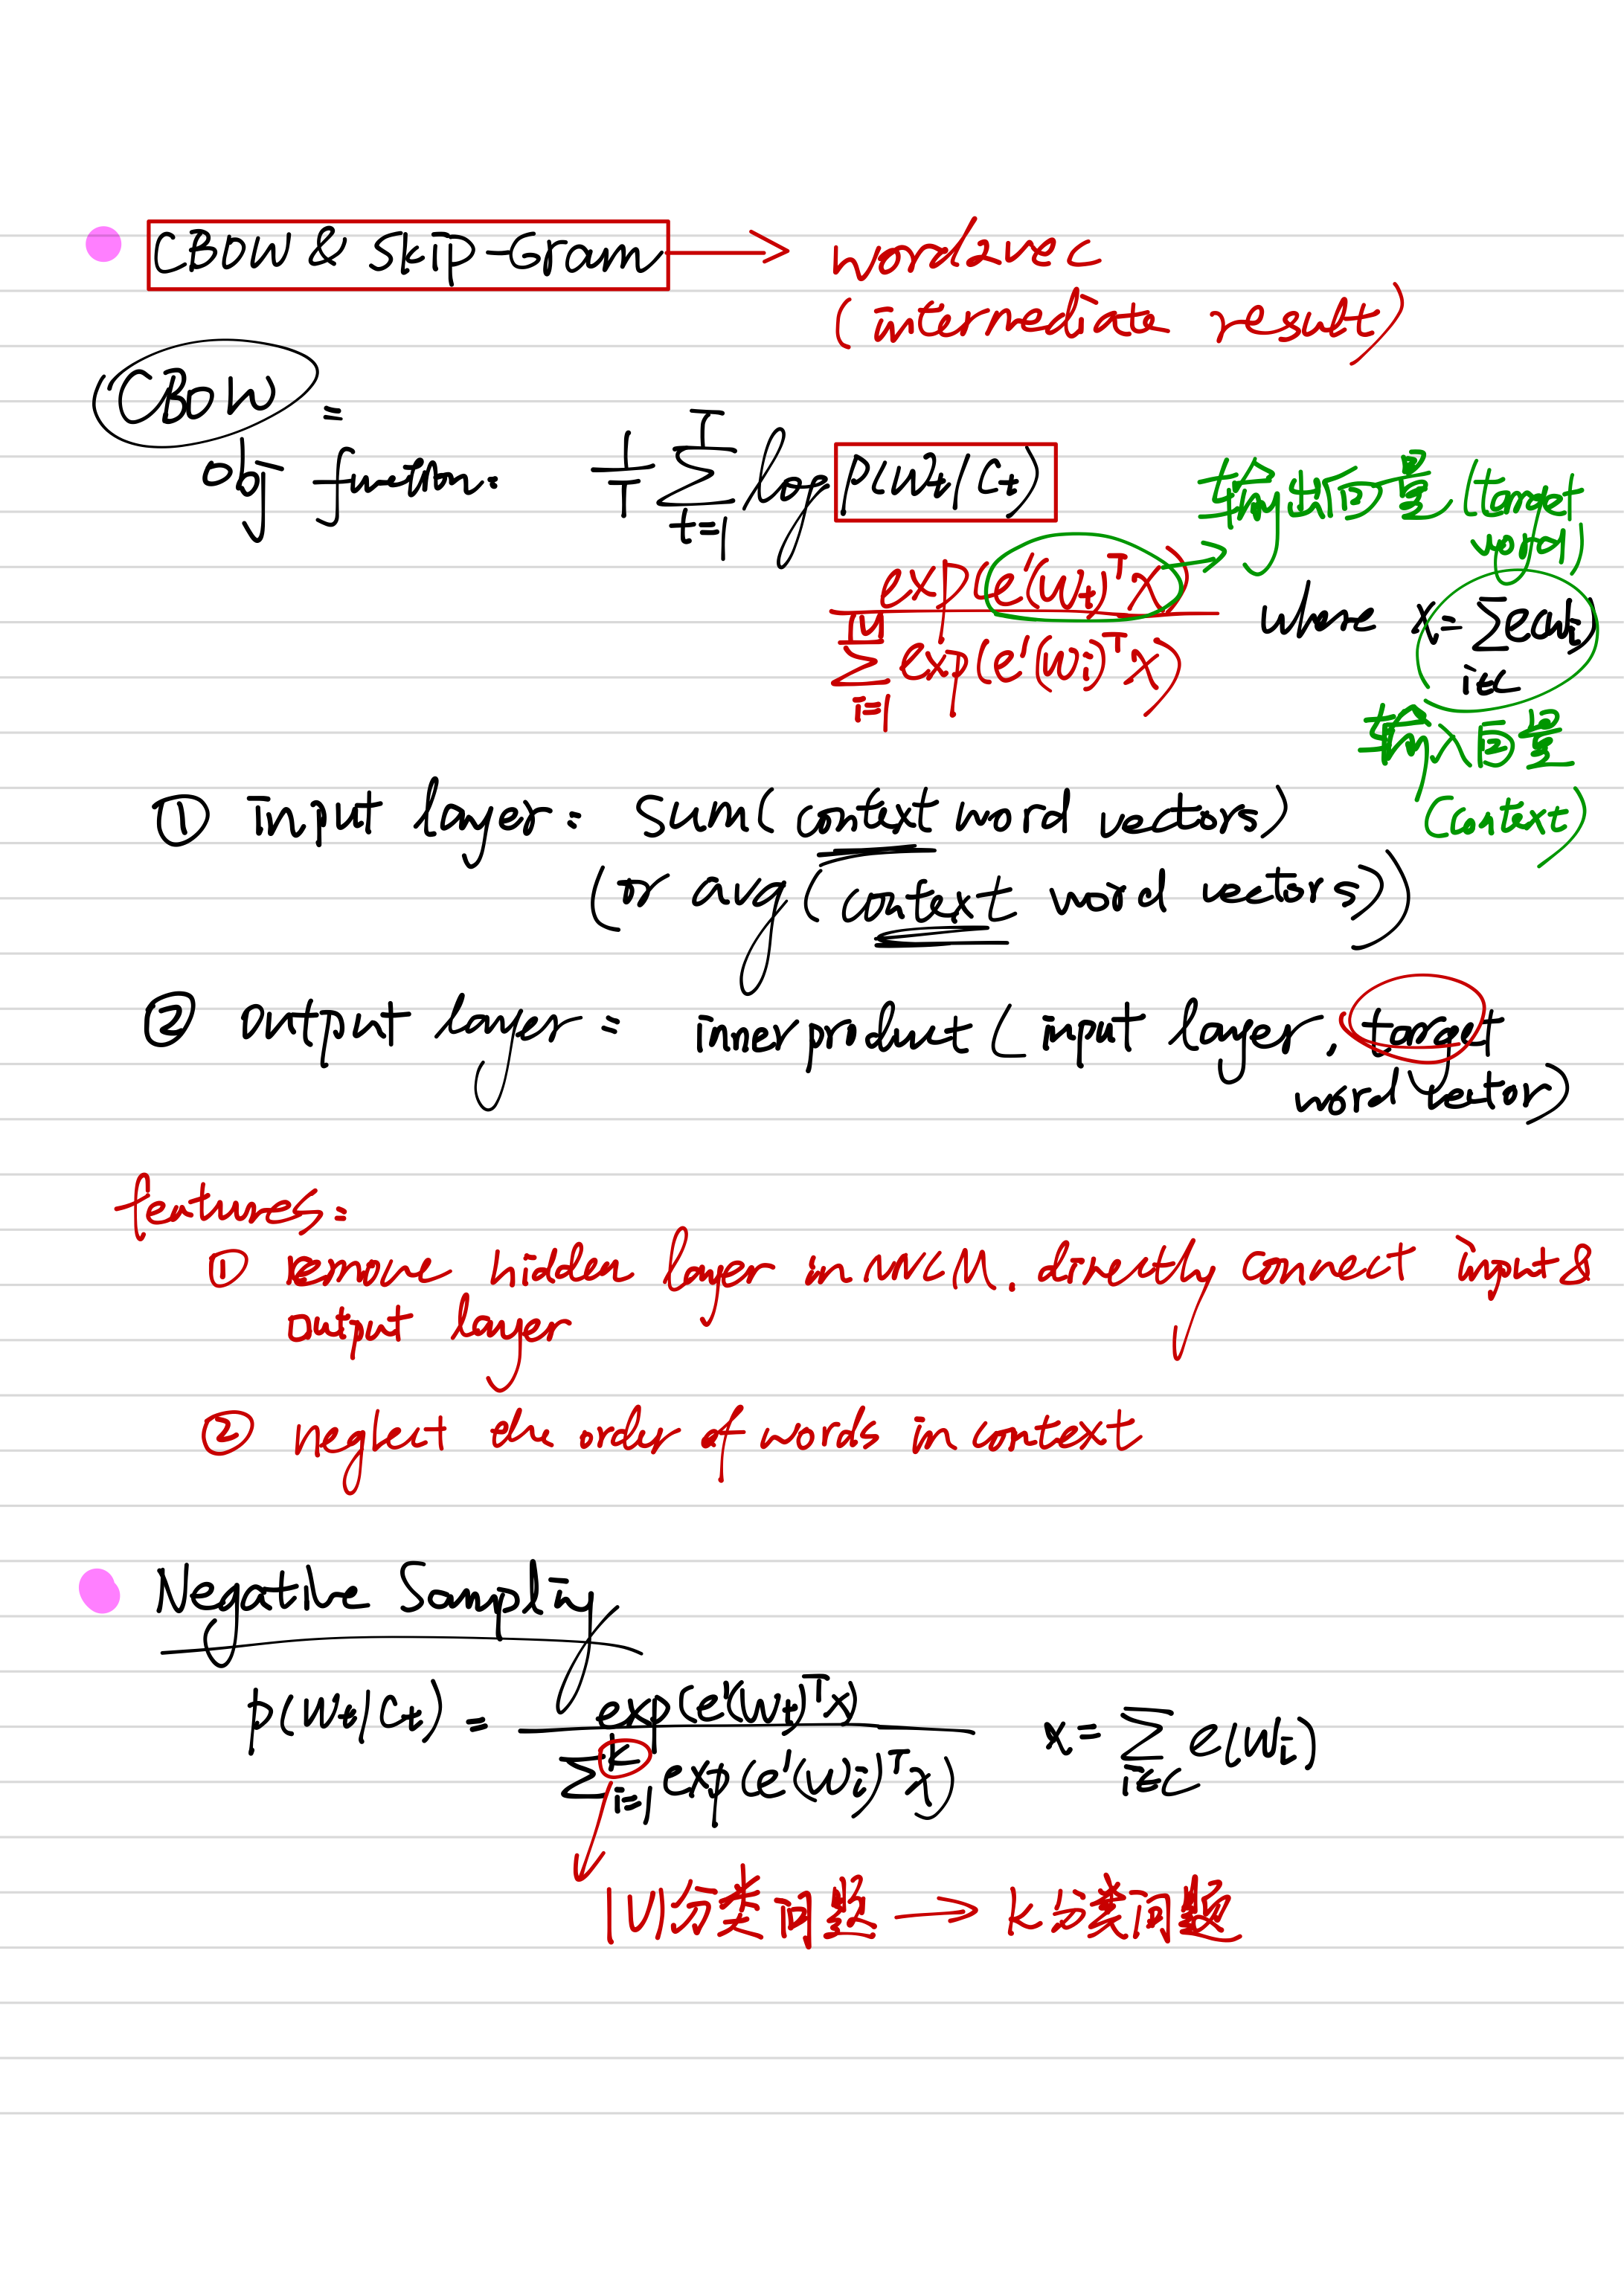 CBOW & Skip-Gram → word2vec
(intermediate result)
CBOW:
obj function: 1/T ∑_{t=1}^{T} log P(Wt|Ct)
输出向量 (target word)
exp(e'(wt)^T x) / ∑_{i=1}^{|V|} exp(e'(wi)^T x) where x = ∑_{i∈c} e(wi)
输入向量
(context)
① input layer: sum(context word vectors)
(or avg(context word vectors))
② output layer: inner product (input layer, target
word vector)
features:
① remove hidden layer in NNLM, directly connect input &
output layer
② neglect the order of words in context
Negative Sampling
p(Wt|Ct) = exp(e'(wt)^T x) / ∑_{i=1}^{k} exp(e'(wi)^T x) x = ∑_{i∈C} e(wi)
|V|分类问题 → k分类问题